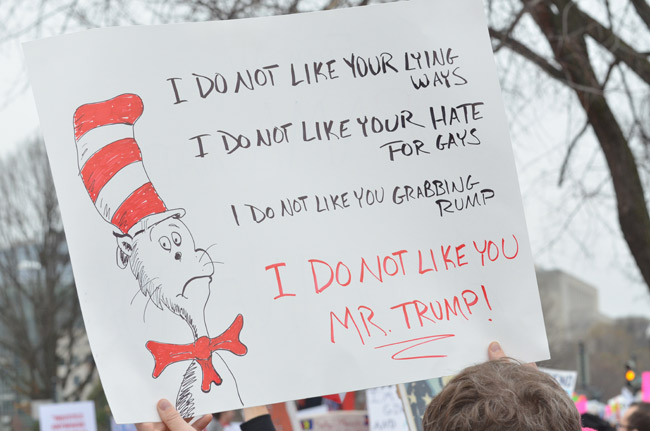 I DO NOT LIKE YOUR LYING
WAYS
I DO NOT LIKE YOUR HATE
FOR GAYS
I DO NOT LIKE YOU GRABBING
RUMP
I DO NOT LIKE YOU
MR. TRUMP!